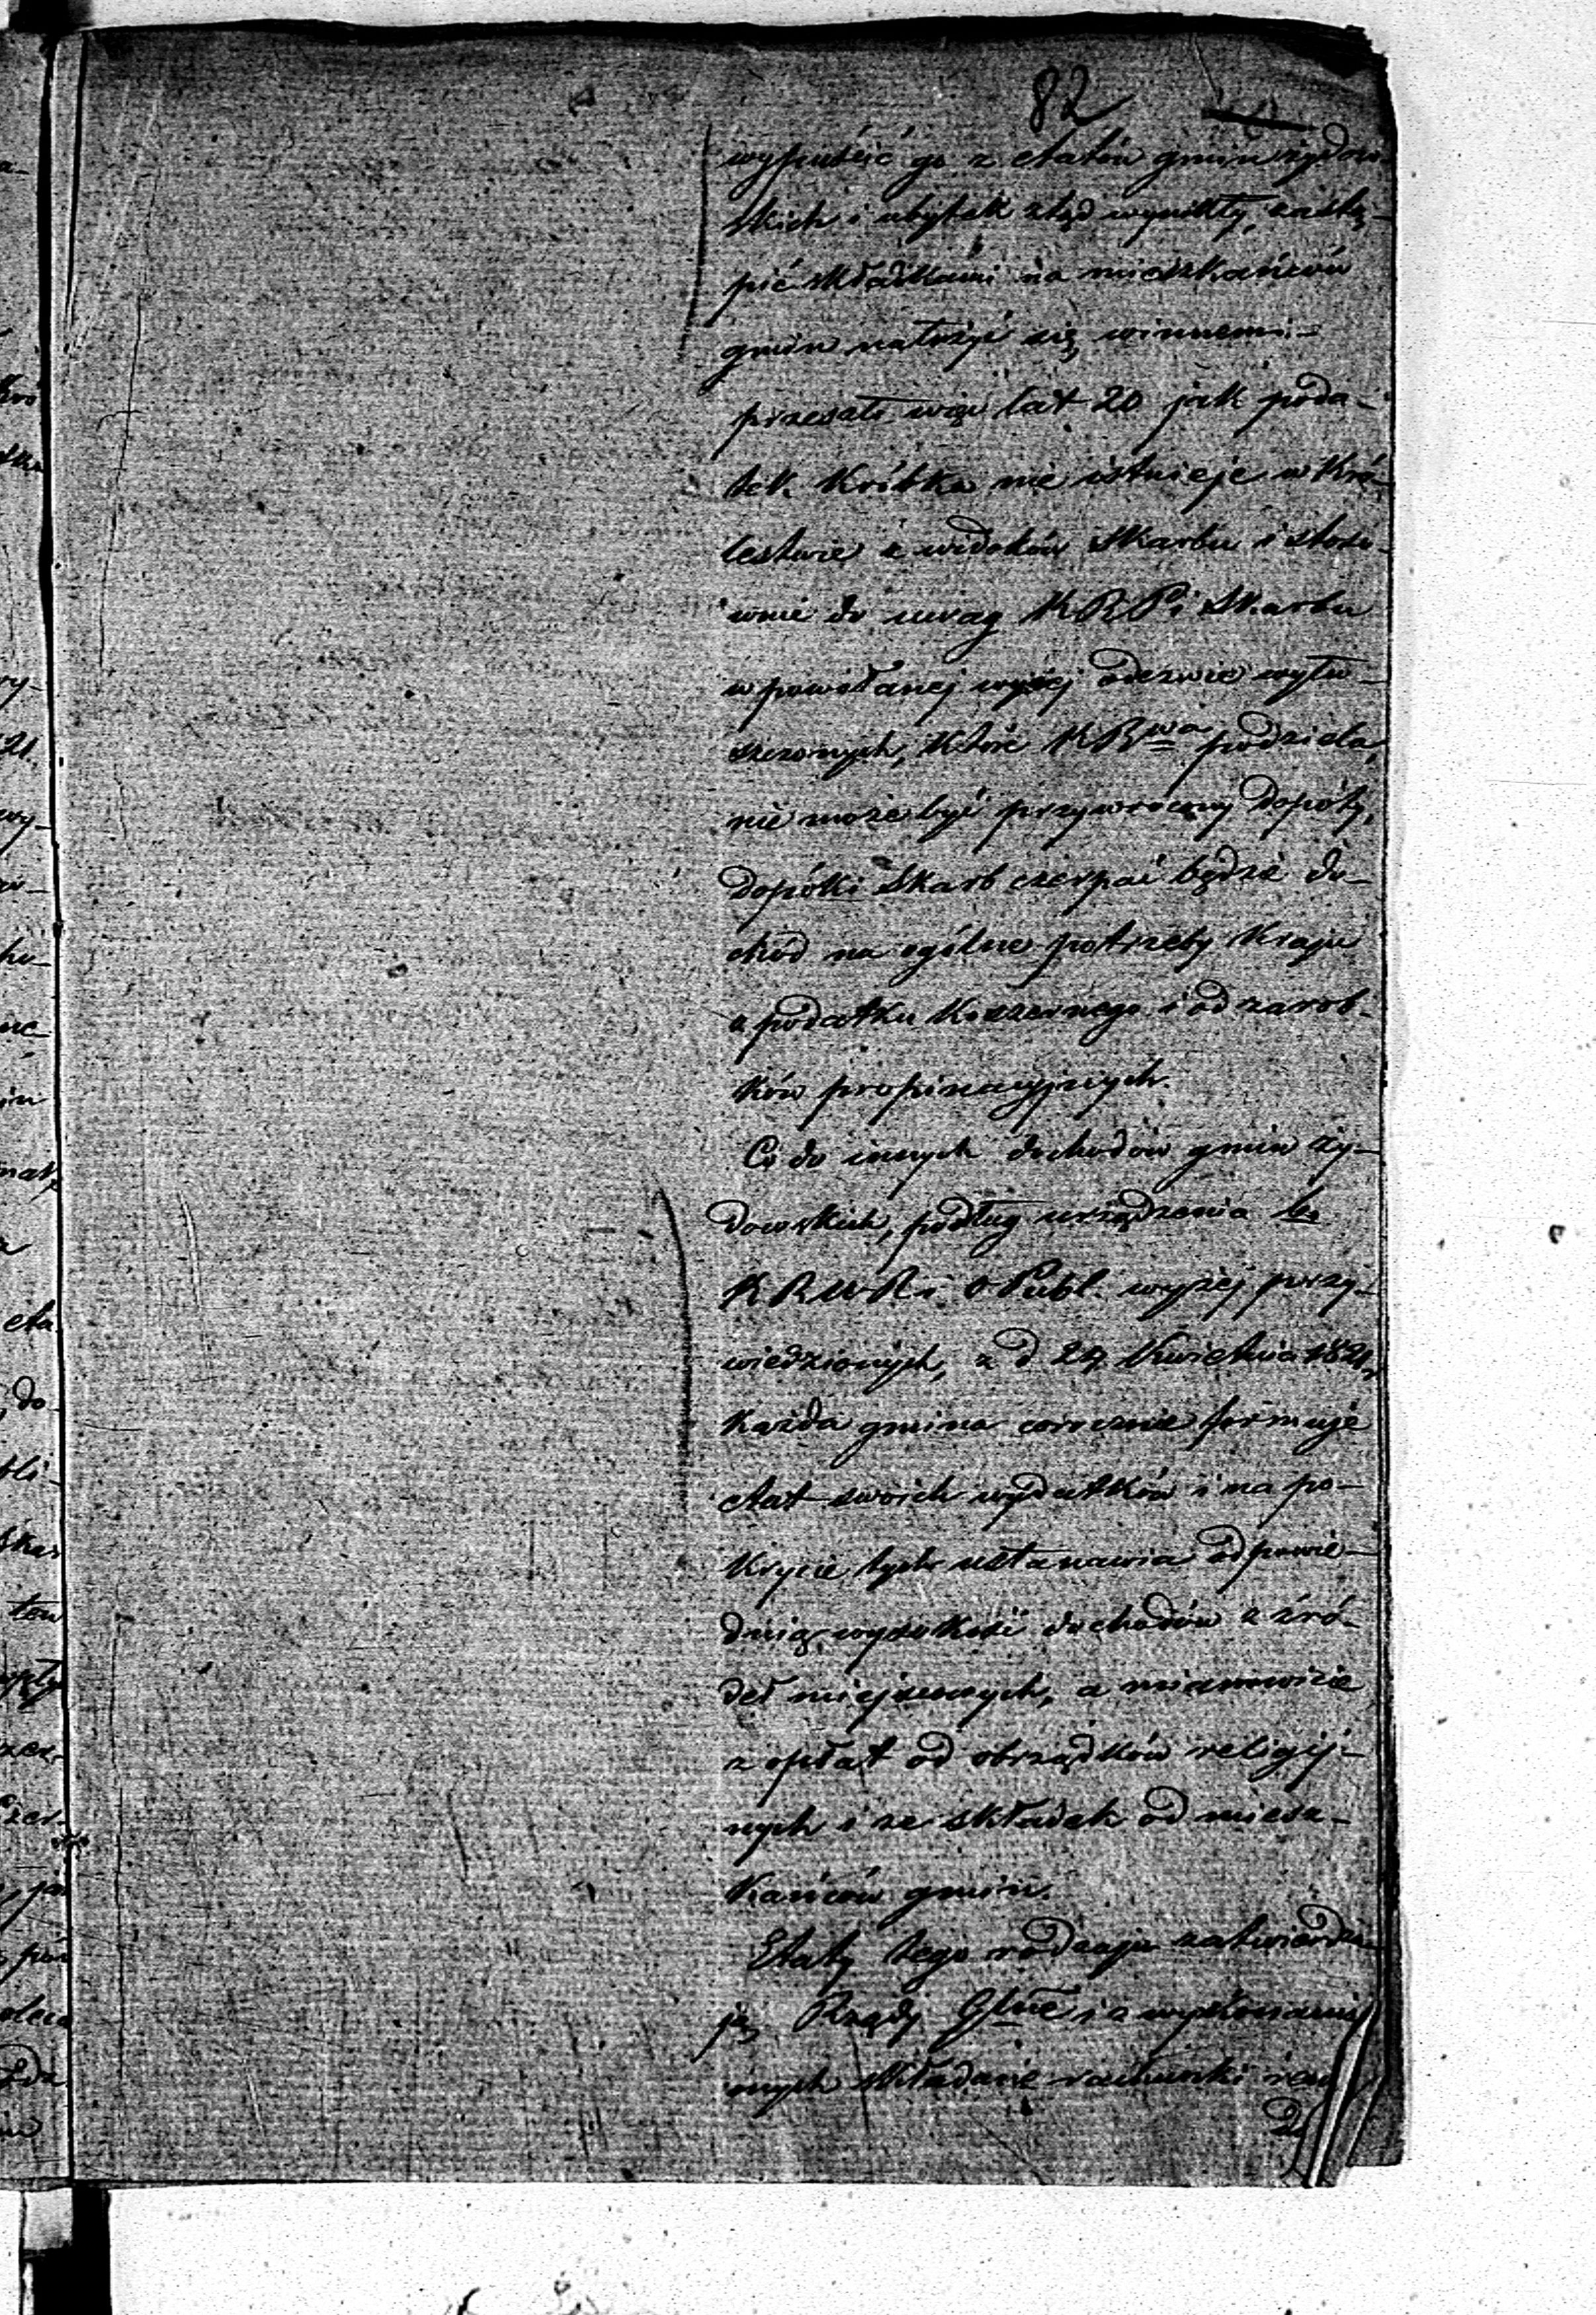 82
wypuścić go z etatów gmin żydow
skich i ubytek ztąd wynikły, zastą-
pić składkami na mieszkańców
gmin nałożyć się winnemi.-
przeszło więc lat 20 jak poda-
tek Króbka nie istnieje w Kró-
lestwie z widoków Skarbu i stoso-
wnie do uwag KRP i Skarbu
w powołanej wyżej odezwie wyłu-
szczonych, które KR wa podziela,
nie może być przywrócony dopóty,
dopóki Skarb czerpać będzie do-
chód na ogólne potrzeby Kraju
z podatku Koszernego i od zarob-
ków propinacyjnych.
Co do innych dochodów gmin ży-
dowskich, podług urządzenia
KRWR i OPubl. wyżej przy-
wiedzionych, z d 27 Kwietnia 1821,
Każda gmina corocznie formuje
etat swoich wydatków i na po-
krycie tych ustanawia odpowie-
dnią wysokość dochodów z źró-
deł miejscowych, a mianowicie
z opłat od obrządków religij-
nych i ze składek od miesz-
kańców gmin.
Etaty tego rodzaju zatwierdza-
ją Rządy Glne i z wykonania
onych składane rachunki